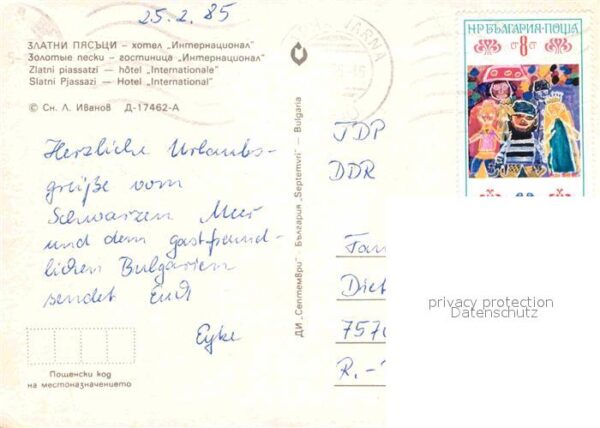 25.2.85
ЗЛАТНИ ПЯСЪЦИ – хотел „Интернационал"
Золотые пески – гостиница „Интернационал"
Zlatni piassatzi – hôtel „Internationale"
Slatni Pjassazi – Hotel „International"
© Сн. Л. Иванов Д-17462-А
Herzliche Urlaubs-
grüße vom
Schwarzen Meer
und dem gastfreund-
lichen Bulgarien
sendet Euch
Eyke
Пощенски код
на местоназначението
ДИ „Септември" – България „Septemvri" – Bulgaria
VARNA
НР БЪЛГАРИЯ·ПОЩА
СТ 8 СТ
DDR
Fam
Diet
7570
R.-
privacy protection
Datenschutz